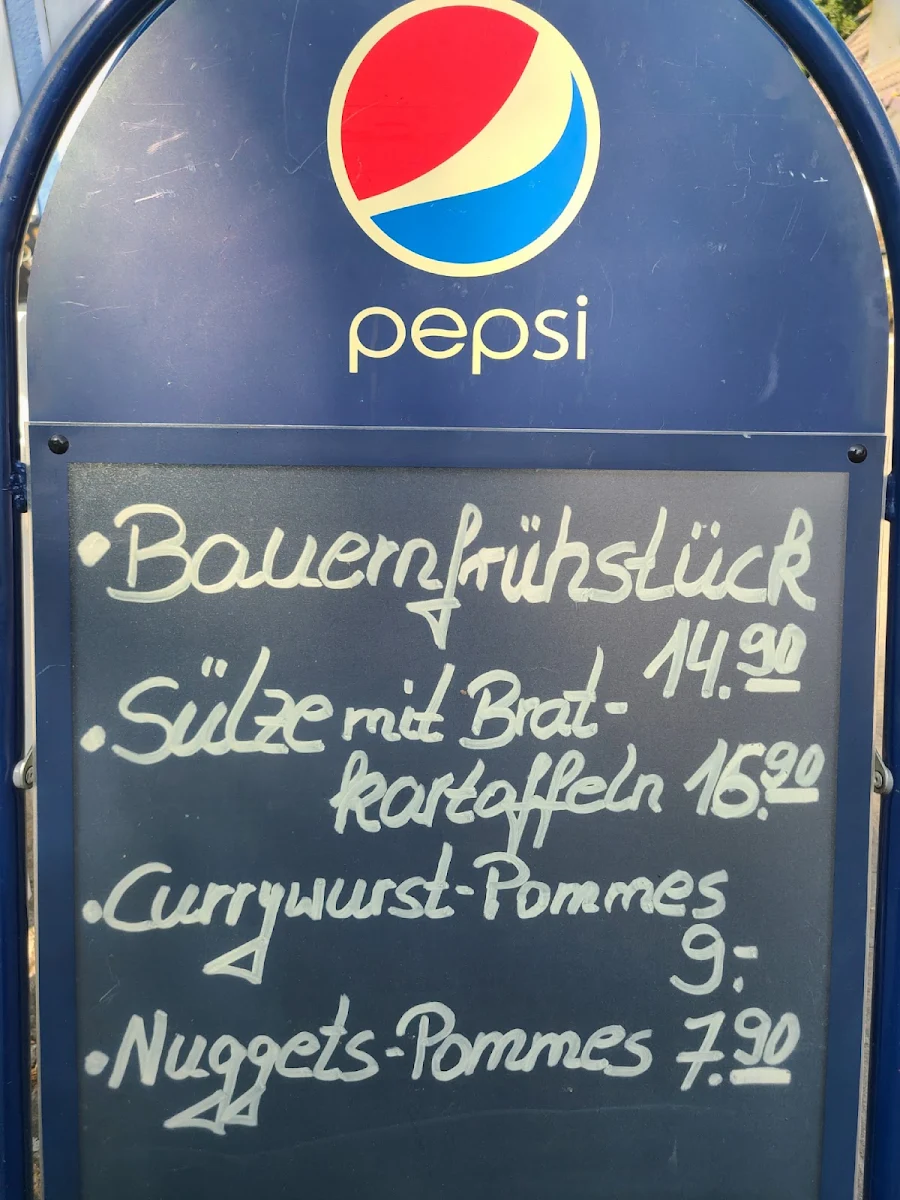 pepsi
• Bauernfrühstück
14.90
• Sülze mit Brat-
kartoffeln 16.90
• Currywurst-Pommes
9.-
• Nuggets-Pommes 7.90